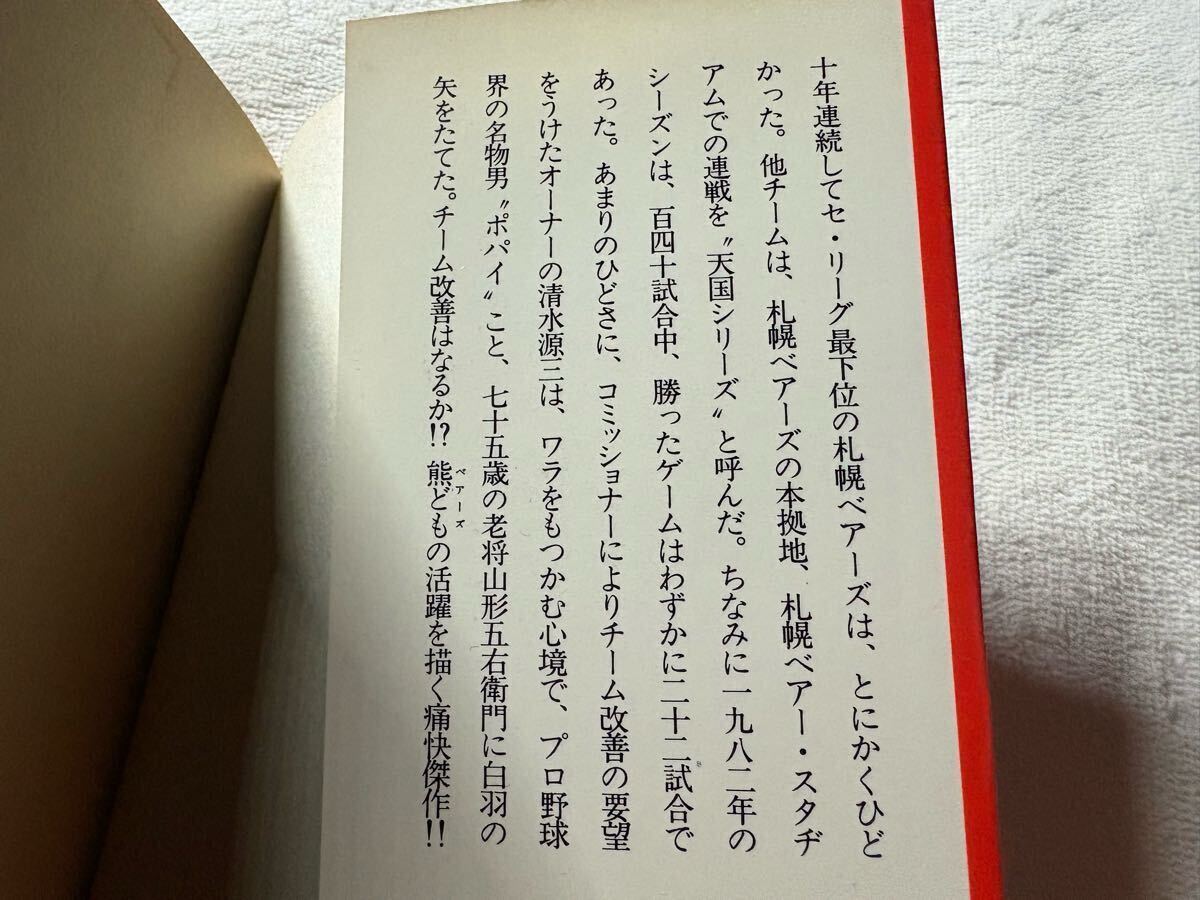 十年連続してセ・リーグ最下位の札幌ベアーズは、とにかくひど
かった。他チームは、札幌ベアーズの本拠地、札幌ベアー・スタヂ
アムでの連戦を〝天国シリーズ〟と呼んだ。ちなみに一九八二年の
シーズンは、百四十試合中、勝ったゲームはわずかに二十二試合で
あった。あまりのひどさに、コミッショナーによりチーム改善の要望
をうけたオーナーの清水源三は、ワラをもつかむ心境で、プロ野球
界の名物男〝ポパイ〟こと、七十五歳の老将山形五右衛門に白羽の
矢をたてた。チーム改善はなるか!? 熊どもの活躍を描く痛快傑作!!
ベアーズ